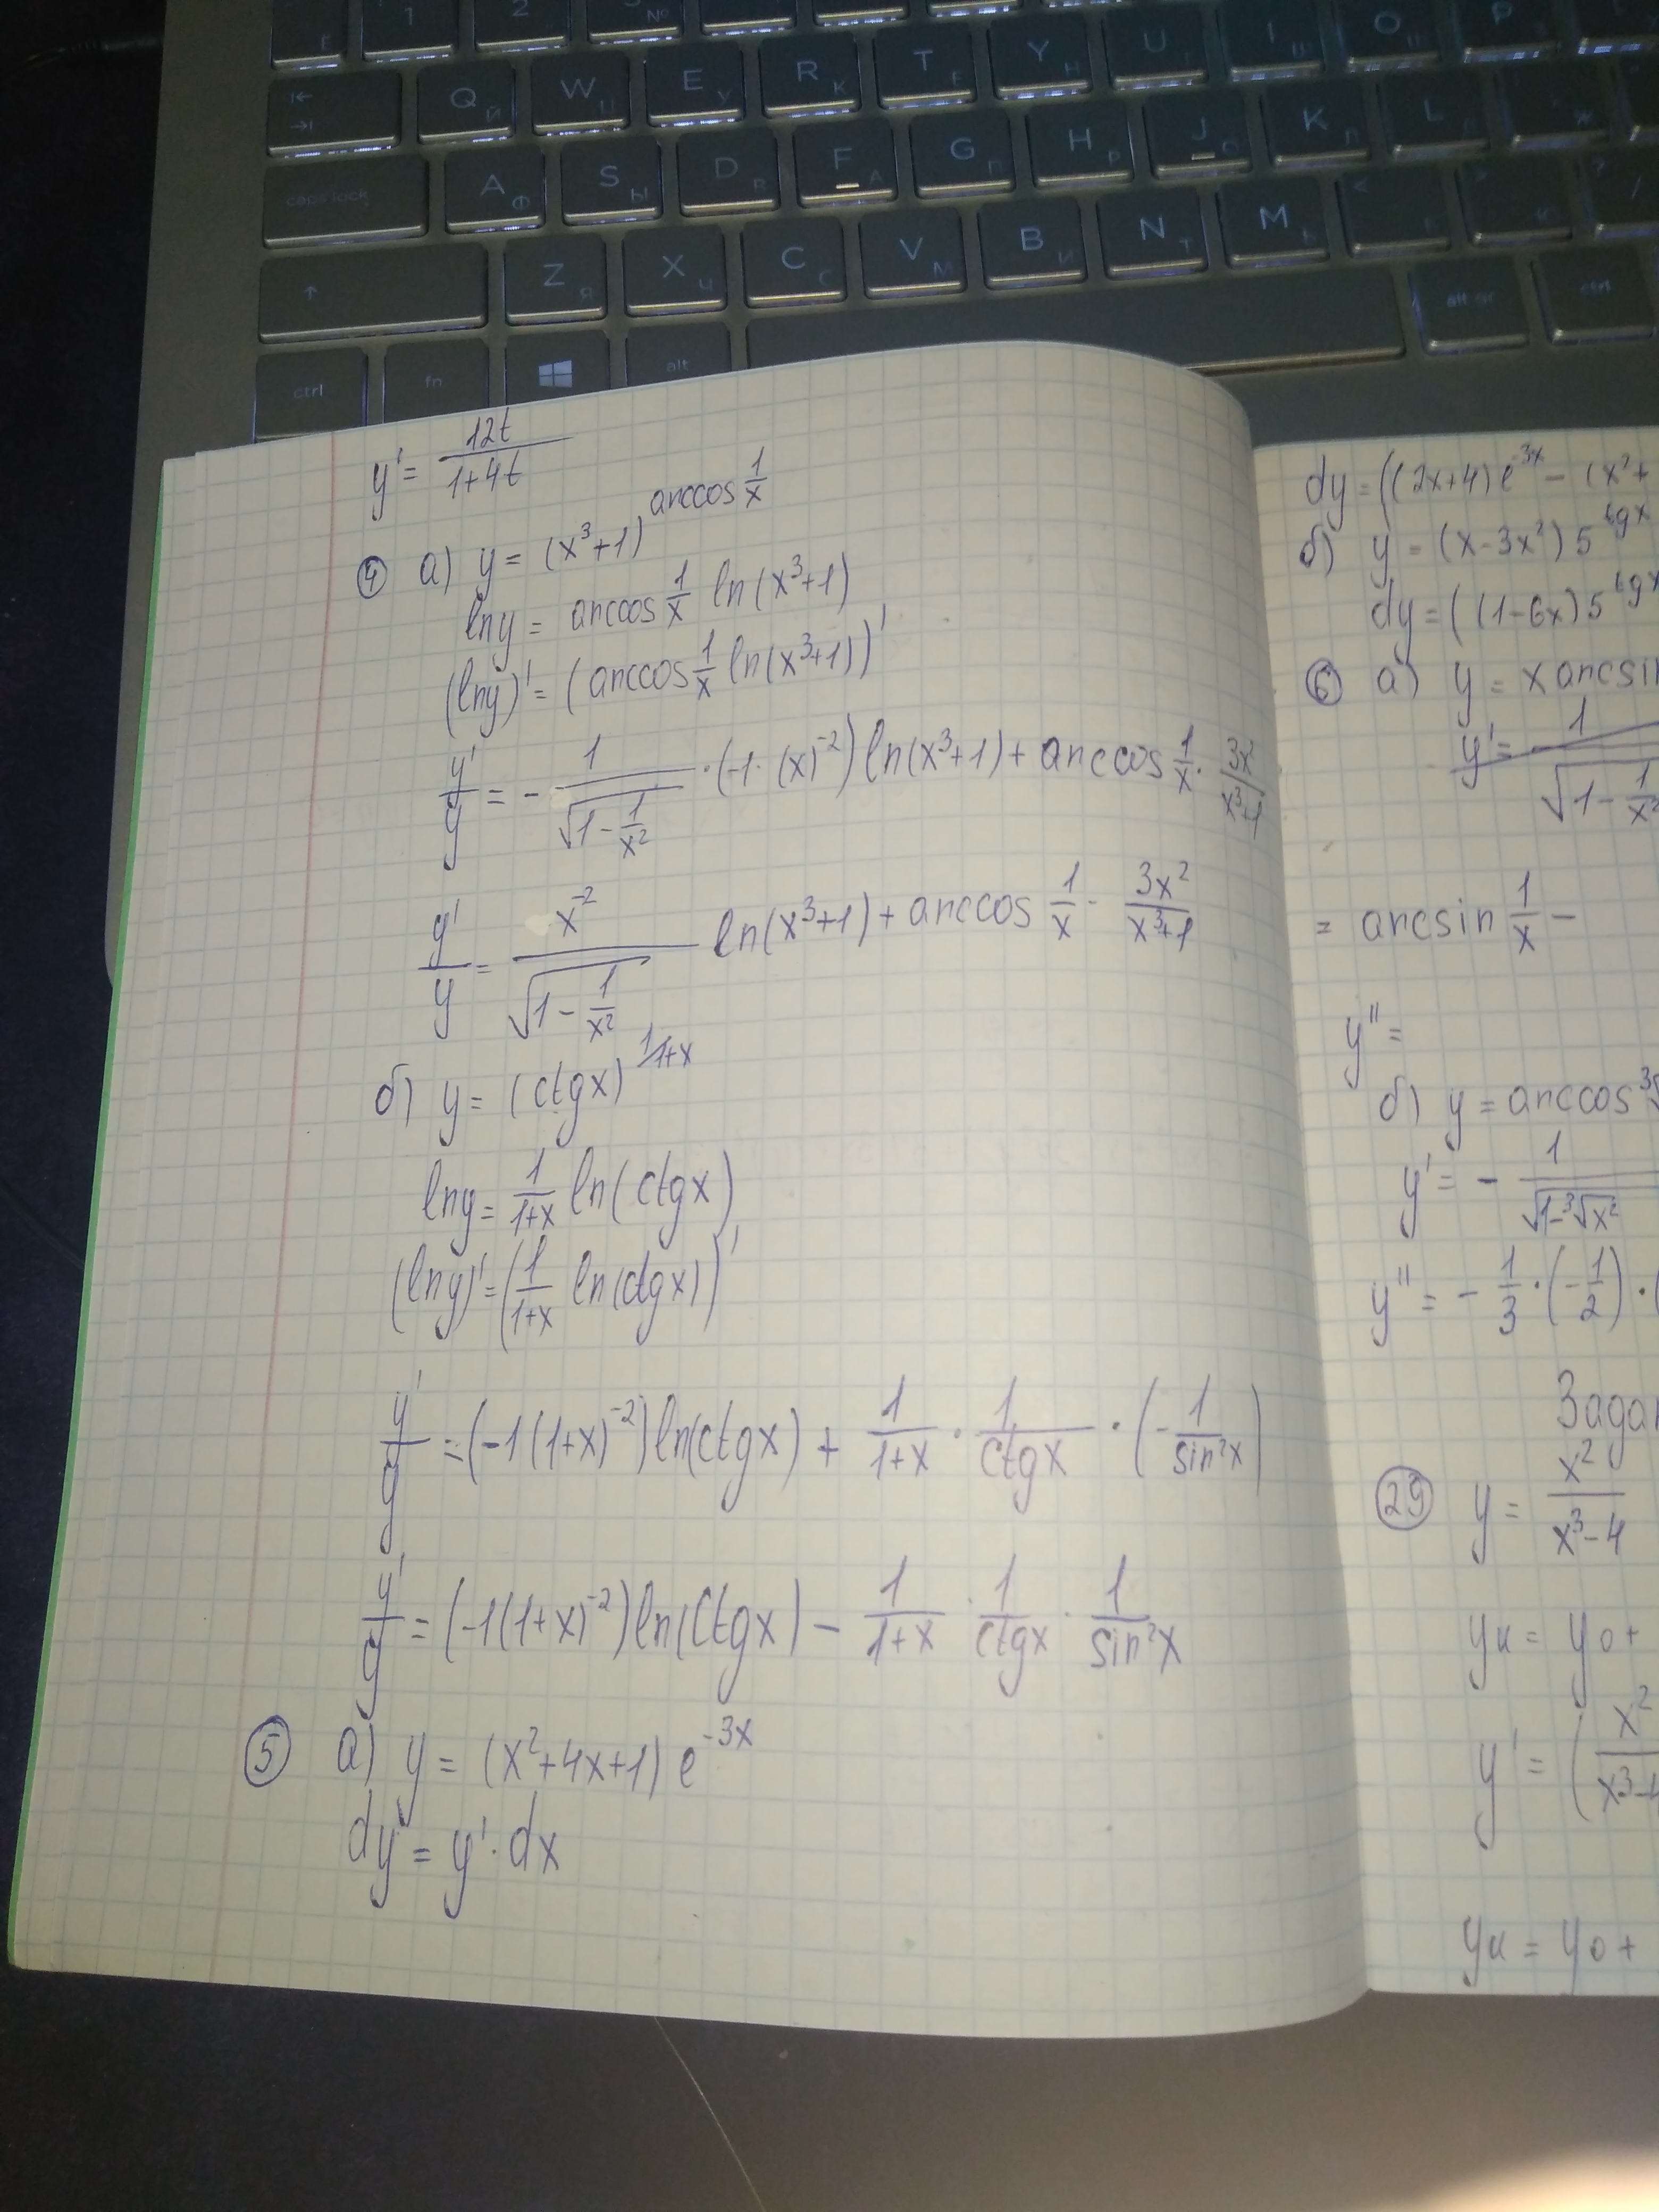 1 2 №
Q Й W Ц E У R К T Е Y Н U Г I Ш O Щ P З
caps lock A Ф S Ы D В F А G П H Р J О K Л L Д Ж
Z Я X Ч C С V М B И N Т M Ь
ctrl fn alt alt gr ctrl
y' = 12t/(1+4t)
④ а) y = (x³+1)^(arccos 1/x)
lny = arccos 1/x ln(x³+1)
(lny)' = (arccos 1/x ln(x³+1))'
y'/y = - 1/√(1 - 1/x²) · (-1·(x)⁻²) ln(x³+1) + arccos 1/x · 3x²/(x³+1)
y'/y = x⁻²/√(1 - 1/x²) ln(x³+1) + arccos 1/x · 3x²/(x³+1)
б) y = (ctgx)^(1/1+x)
lny = 1/(1+x) ln(ctgx)
(lny)' = (1/(1+x) ln(ctgx))'
y'/y = (-1(1+x)⁻²) ln(ctgx) + 1/(1+x) · 1/ctgx · (- 1/sin²x)
y'/y = (-1(1+x)⁻²) ln(ctgx) - 1/(1+x) · 1/ctgx · 1/sin²x
⑤ а) y = (x²+4x+1) e^(-3x)
dy = y'·dx
dy = ((2x+4)e^(-3x) - (x²+
б) y = (x-3x²) 5^(tgx)
dy = ((1-6x) 5^(tgx)
⑥ а) y = x arcsin
y' = 1/√(1 - 1/x²)
= arcsin 1/x -
y'' =
б) y = arccos ³√
y' = - 1/√(1-³√x²)
y'' = - 1/3 · (-1/2) ·
Задан
㉙ y = x²/(x³-4)
yк = y0 +
y' = (x²/(x³-4
yк = y0 +